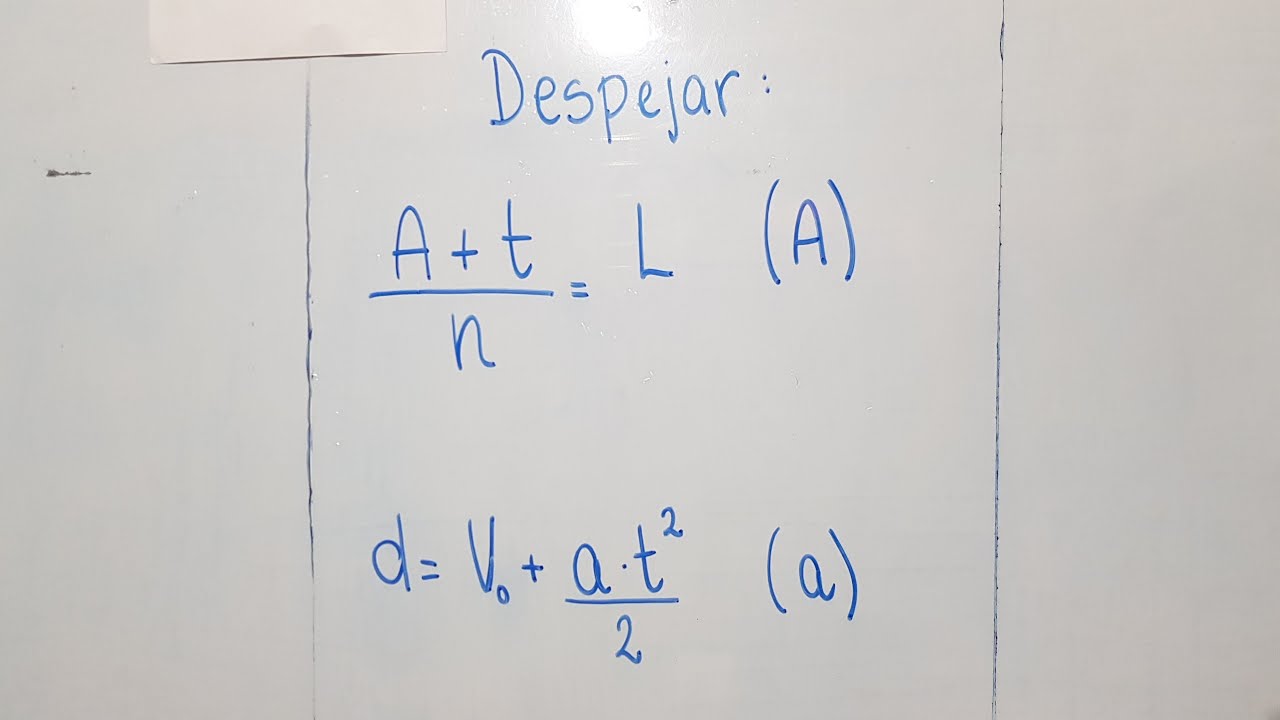 Despejar:
A + t / n = L (A)
d = V₀ + a · t² / 2 (a)